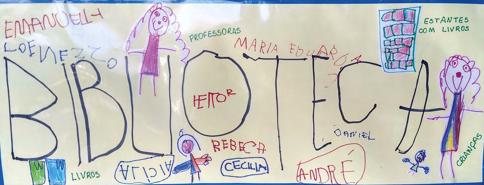 EMANUELLY
LORENZZO
PROFESSORAS
MARIA EDUARDA
ESTANTES
COM LIVROS
BIBLIOTECA
HEITOR
DANIEL
REBECA
LIVROS
ALICIA
CECILIA
ANDRÉ
CRIANÇAS